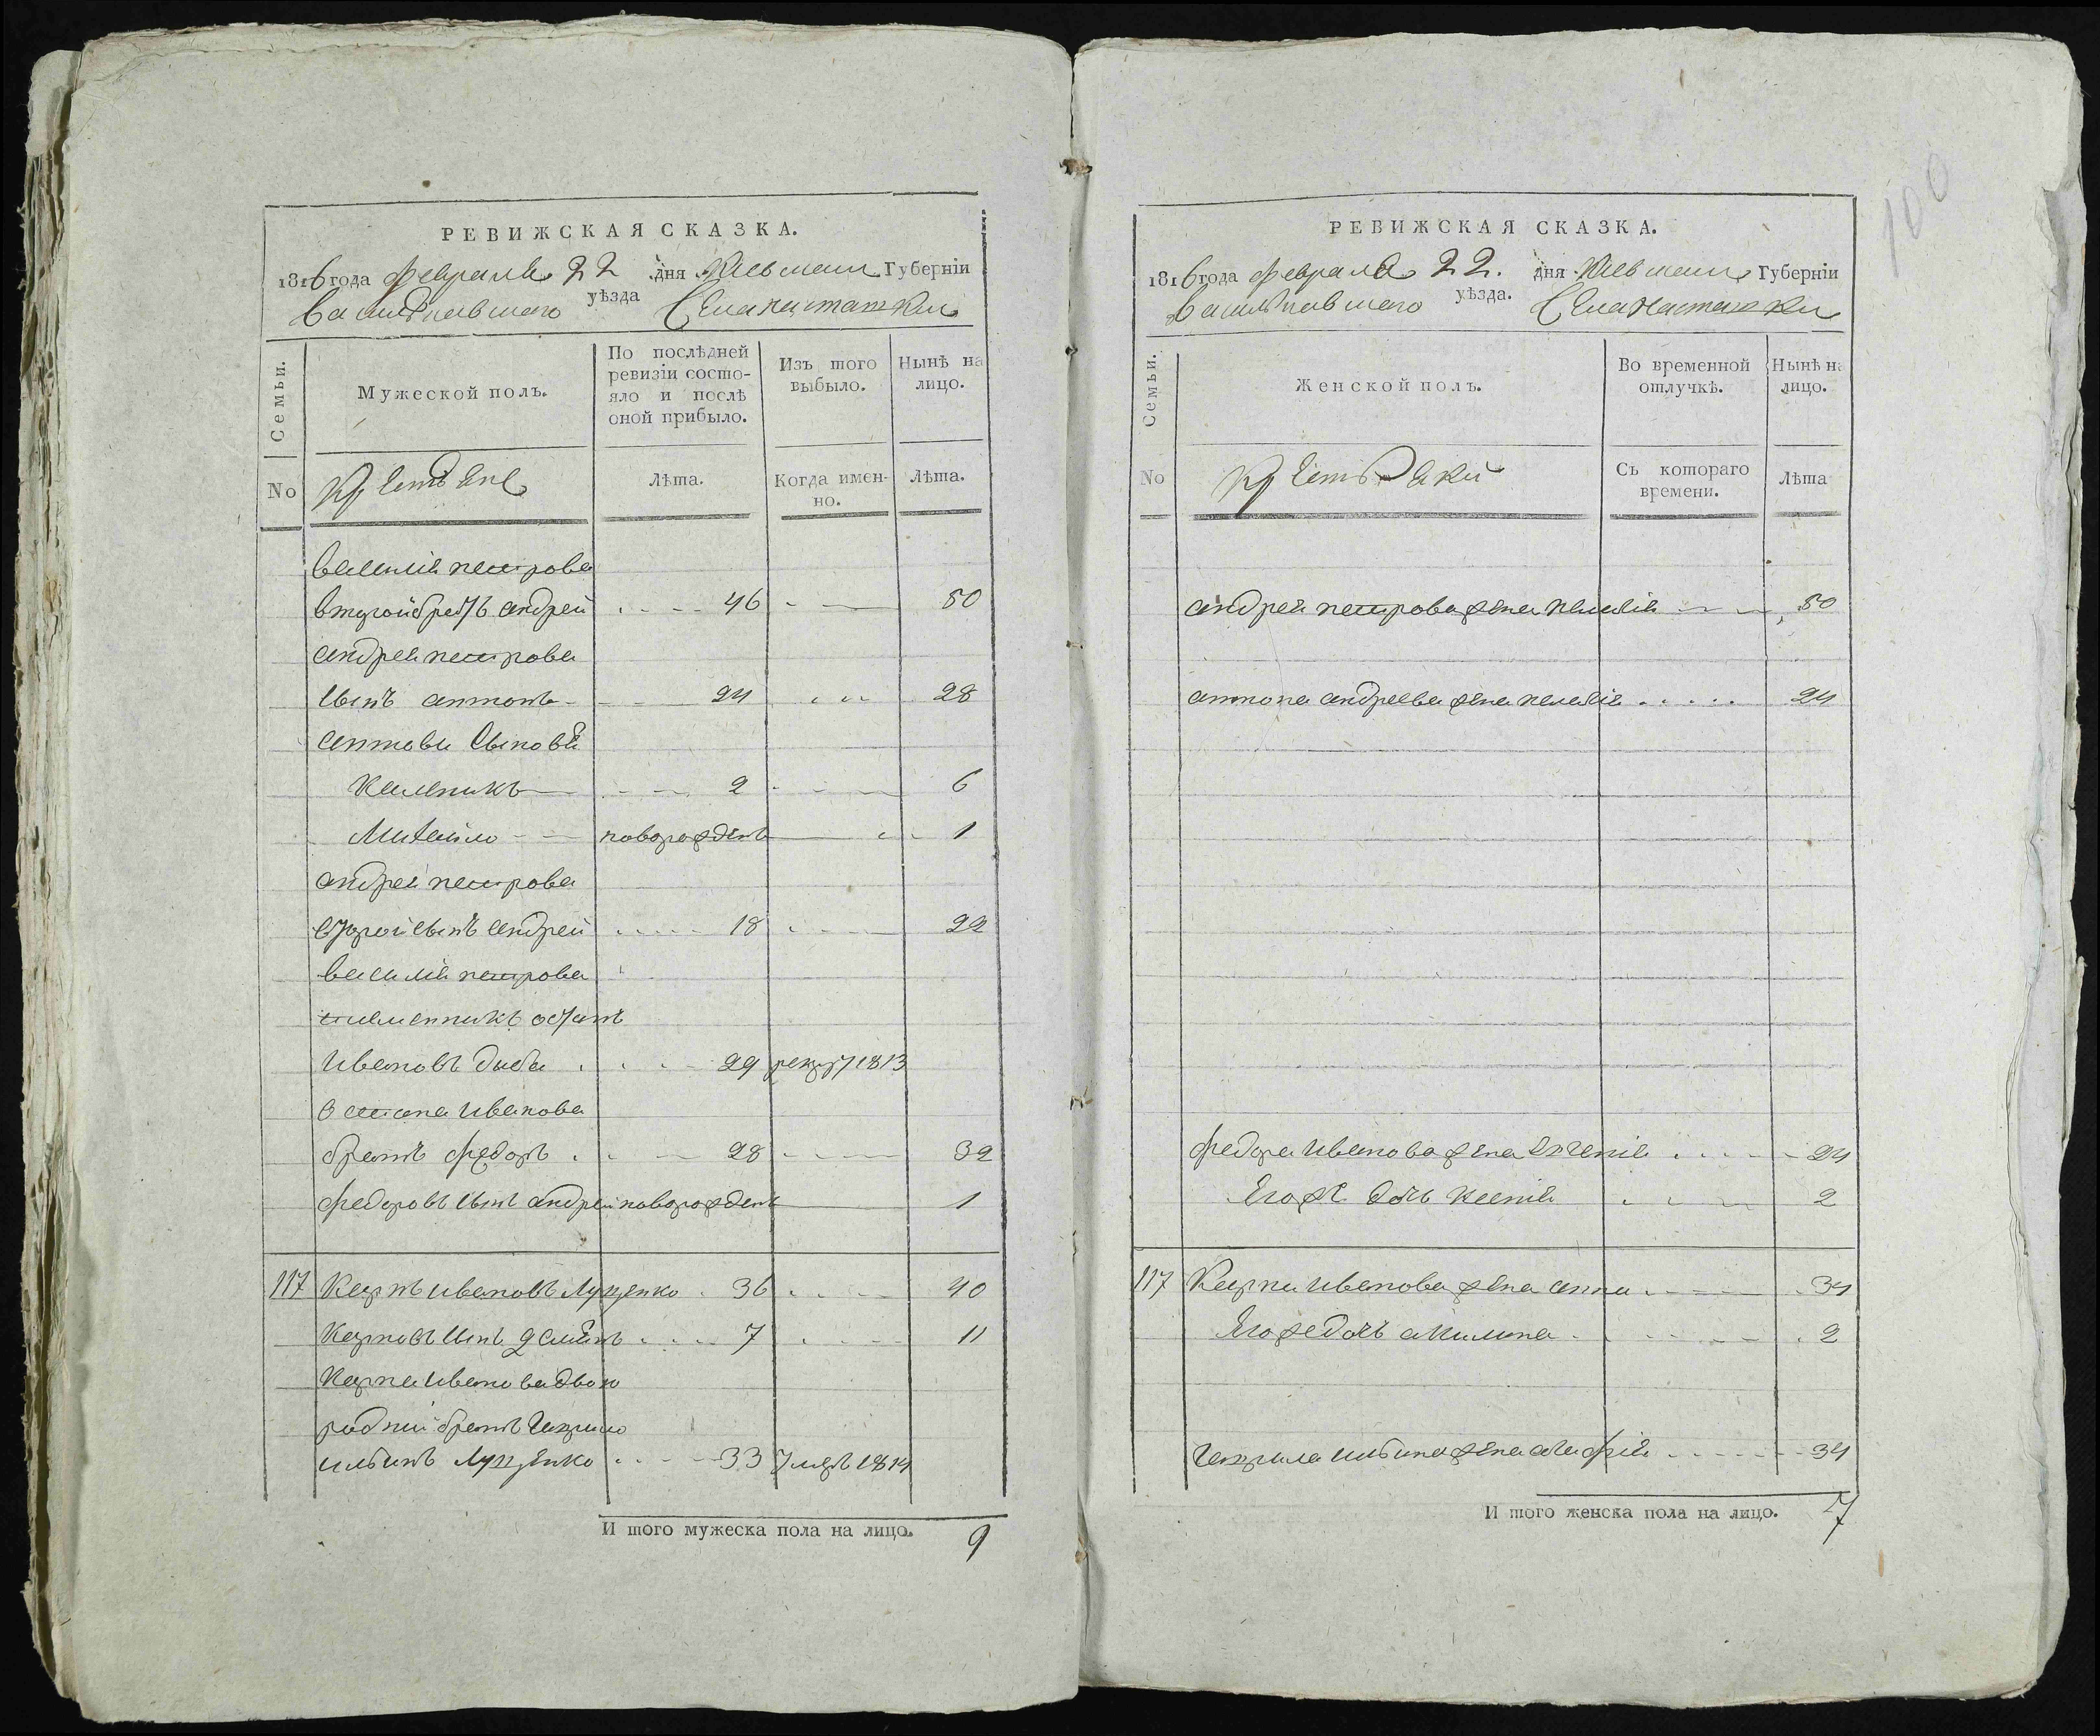 РЕВИЖСКАЯ СКАЗКА.
1816 года февраля 22 дня Киевской Губерніи
Васильковского уѣзда Села Насташки
Семьи.
Мужеской полъ.
По послѣдней ревизіи состояло и послѣ оной прибыло.
Изъ того выбыло.
Нынѣ на лицо.
No
Крестьяне
Лѣта.
Когда именно.
Лѣта.
Василія петрова
второй братъ андрей 46 50
андрея петрова
сынъ антонъ 24 28
антона сыновья
Каленикъ 2 6
Михайло новорожденъ 1
андрея петрова
второй сынъ андрей 18 22
василія петрова
племенникъ остапъ
Ивановъ 29 рекрут 1813
остапа Иванова
братъ Федоръ 28 32
Федоровъ сынъ андрей новорожденъ 1
117 Карпъ ивановъ Луценко 36 40
Карповъ сынъ 7 11
Карпа Иванова двою
родный братъ Гаврило
ильинъ Луценко 33 умре 1814
И того мужеска пола на лицо. 9
100
РЕВИЖСКАЯ СКАЗКА.
1816 года февраля 22. дня Киевской Губерніи
Васильковского уѣзда. Села Насташки
Семьи.
Женской полъ.
Во временной отлучкѣ.
Нынѣ на лицо.
No
Крестьянки
Съ котораго времени.
Лѣта
андрея петрова жена пелагія 50
антона андреева жена пелагія 24
Федора Иванова жена Евгенія 24
Его жъ дочь Ксенія 2
117 Карпа Иванова жена анна 34
Его же дочь акилина 2
Гаврила ильина жена агафія 34
И того женска пола на лицо. 7